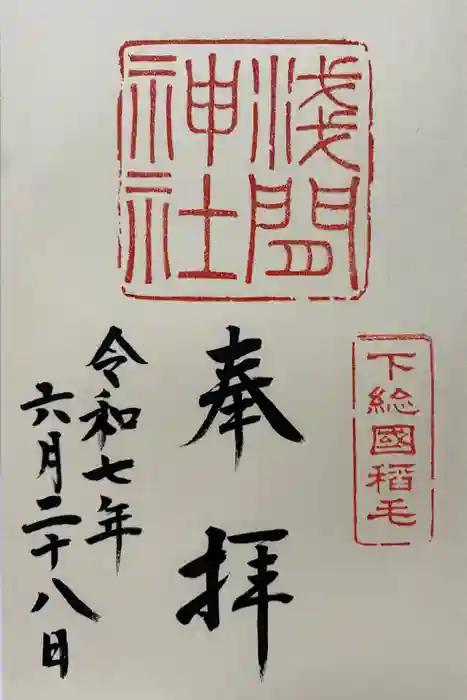 淺間
神社
下総國稲毛
奉拝
令和七年
六月二十八日